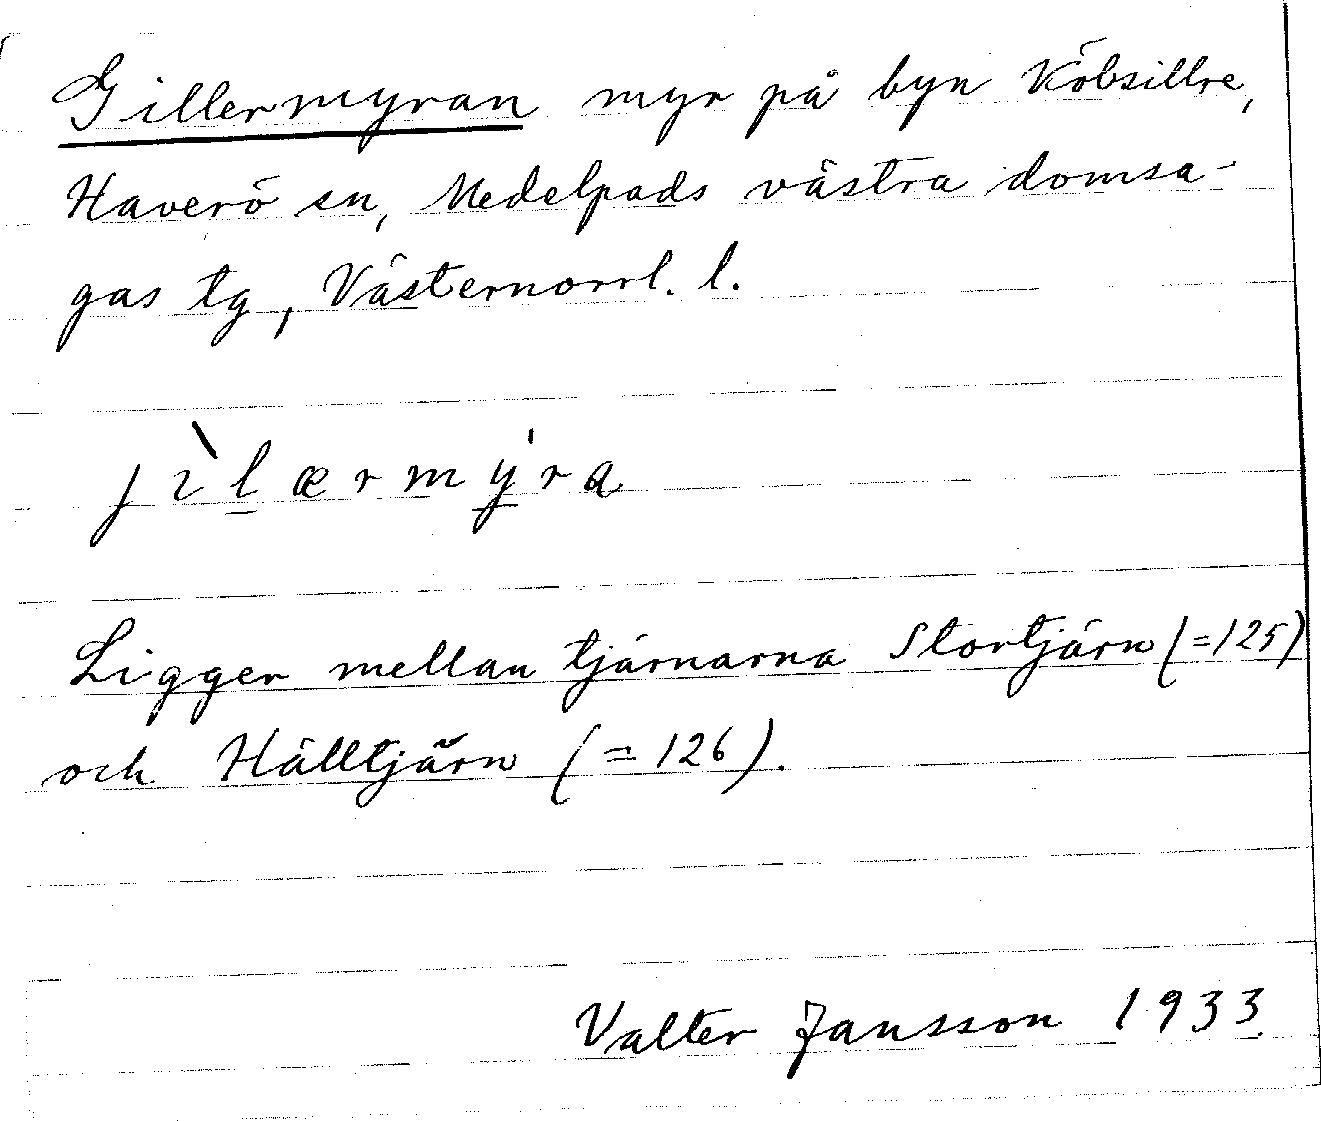 Gillermyran myr på byn Köbsillre,
Haverö sn, Medelpads västra domsa-
gas tg, Västernorrl. l.
jìlærmy̍ra
Ligger mellan tjärnarna Stortjärn (=125)
och Hälltjärn (=126).
Valter Jansson 1933